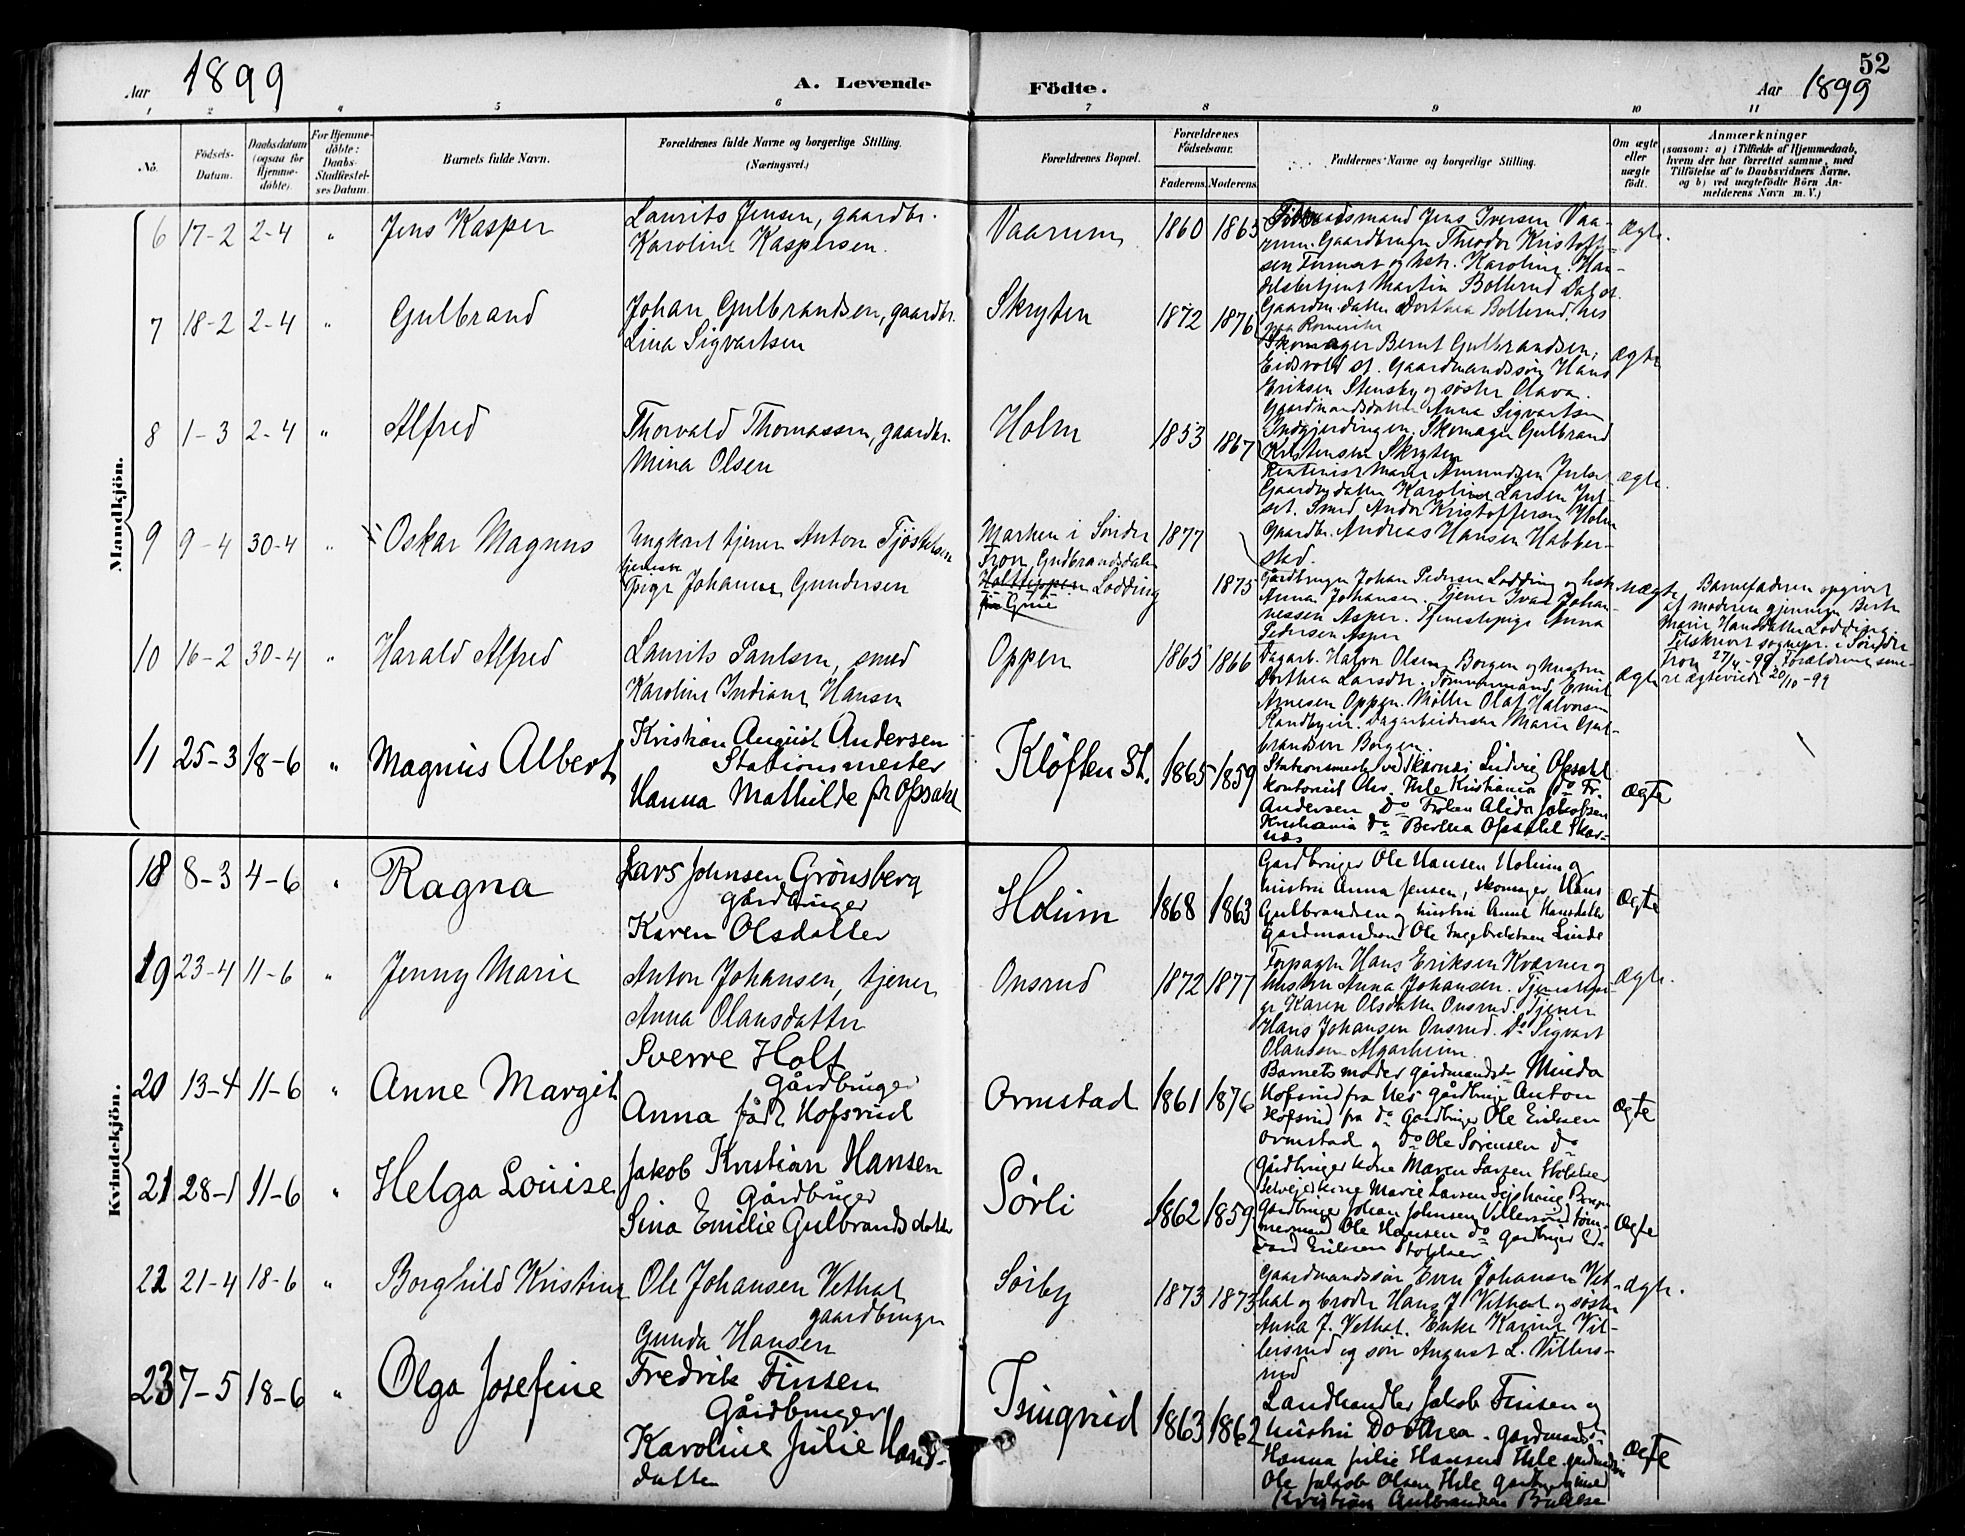 52
Aar 1899
A. Levende
Födte.
Aar 1899
1 2 3 4 5 6 7 8 9 10 11
No.
Födsels-Datum.
Daabsdatum (ogsaa for Hjemme-döbte).
For Hjemme-döbte: Daabs-Stadfæstel-ses Datum.
Barnets fulde Navn.
Forældrenes fulde Navne og borgerlige Stilling. (Næringsvei.)
Forældrenes Bopæl.
Forældrenes Födselsaar.
Faderens. Moderens.
Faddernes Navne og borgerlige Stilling.
Om ægte eller uægte födt.
Anmærkninger
(saasom: a) i Tilfælde af Hjemmedaab,
hvem der har forrettet samme, med
Tilföielse af to Daabsvidners Navne,
og b) ved uægtefödte Börn An-
melderens Navn m. V.)
Mandkjön.
6 17-2 2-4 " Jens Kasper
Laurits Jensen, gaardbr.
Karoline Kaspersen.
Vaarum 1860 1865
Jens Iversen Vaa-
rum. Gaardbruger Theodor Kristoff-
sen og hstr. Karoline. Han-
delsbetjent Martin Bollerud Dal st.
Gaardm. datter Dorthea Bollerud, Nes
paa Romerike
Ægte
7 18-2 2-4 " Gulbrand
Johan Gulbrandsen, gaardbr.
Lina Sigvartsen
Skryten 1872 1876
Skomager Bernt Gulbrandsen,
Eidsvold st. Gaardmandssön Hans
Eriksen Stensby og söster Olava.
Gaardmandsdatter Anna Sigvartsen
Indgjerdingen. Skomager Gulbrand
Kristensen Skryten
Ægte
8 1-3 2-4 " Alfred
Thorvald Thomassen, gaardbr.
Mina Olsen
Holm 1853 1867
Marie Amundsen Julset
Gaardbr. datter Karoline Larsen Jul-
set. Smed Andor Kristoffersen Holm
Gaardbr. Andreas Hansen Habber-
stad.
Ægte.
9 9-4 30-4 " Oskar Magnus
Ungkarl tjener Anton Tjöstelsen
tjeneste
Pige Johanne Gundersen
Marken i Söndre
Fron, Gudbrandsdalen
Lodding
1877 1875
Gårdbruger Johan Pedersen Lodding og hstr.
Anna Johansen. Tjener Ivar Johan-
nessen Asper. Tjenestepige Anna
Pedersen Asper
uægte
Barnefaderen opgivet
af moderen gjennem Berte
Marie Hansdatter Lodding.
Tilskrevet sognepr. i Söndre
Fron 27/4-99. Forældrene sene-
re ægteviede 20/10-99
10 16-2 30-4 " Harald Alfred
Laurits Paulsen, smed
Karoline Indiane Hansen
Oppen 1865 1866
Dagarb. Halvor Olsen Borgen og hustru
Dorthea Larsdtr. Tömmermand Emil
Arnesen Oppen. Möller Olaf Halvorsen
Randbyeie. Dagarbeiderske Marie Gul-
brandsen Borgen.
Ægte
11 25-3 18-6 " Magnus Albert
Kristian August Andersen
Stationsmester
Hanna Mathilde f. Opsahl
Klöften St. 1865 1859
Stationsmester ved Skarnes Ludvig Opsahl
Kontorist Chr. Hile Kristiania do Fr.
Andersen Do Fröken Alida Jakobsen
Kristiania do Bertha Opsahl Skar-
næs
Ægte
Kvindekjön.
18 8-3 4-6 " Ragna
Lars Johnsen Grönsberg
gårdbruger
Karen Olsdatter
Holum 1868 1863
Gardbruger Ole Hansen Holum og
hustru Anna Jensen, skomager Hans
Gulbrandsen og hustru Anne Hansdatter
Gardmandssön Ole Ingebretsen Linde
Ægte
19 23-4 11-6 " Jenny Marie
Anton Johansen, tjener
Anna Olausdatter
Onsrud 1872 1877
Forpagter Hans Eriksen Kværner og
hustru Anna Johansen. Tjenestepi-
ge Karen Olsdatter Onsrud. Tjener
Hans Johansen Onsrud. Do Sigvart
Olausen Algarheim.
Ægte.
20 13-4 11-6 " Anne Margit
Sverre Holt
Gårdbruger
Anna född Hofsrud
Ormstad 1861 1876
Barnets moder gårdmandsdr Minda
Hofsrud fra Nes gårdbruger Anton
Hofsrud fra do Gardbruger Ole Eriksen
Ormstad og do Ole Sörensen do
Ægte
21 28-1 11-6 " Helga Louise
Jakob Kristian Hansen
Gårdbruger
Sina Emilie Gulbrandsdatter
Sörli 1862 1859
Gårdbrugerkone Maren Larsen
Selveierkone Marie Larsen
Gårdbruger Johan Johnsen Villersrud töm-
mermand Ole Hansen do gårdbruger Ed-
vard Eriksen
Ægte
22 21-4 18-6 " Borghild Kristine
Ole Johansen Vethal
gaardbruger
Gunda Hansen
Sörby 1873 1873
Gaardmandssön Even Johansen Vet-
hal og broder Hans J. Vethal og söster
Anna J. Vethal. Enke Karine Vil-
lersrud og sön August L. Villers-
rud
Ægte.
23 7-5 18-6 " Olga Josefine
Fredrik Finsen
Gårdbruger
Karoline Julie Hans-
datter
Isingrud 1863 1862
Landhandler Jakob Finsen og
hustru Dorthea. gardmandsdr
Hanna Julie Hansen Hile
Ole Jakob Olsen Hile
Kristian Gulbrandsen
Ægte